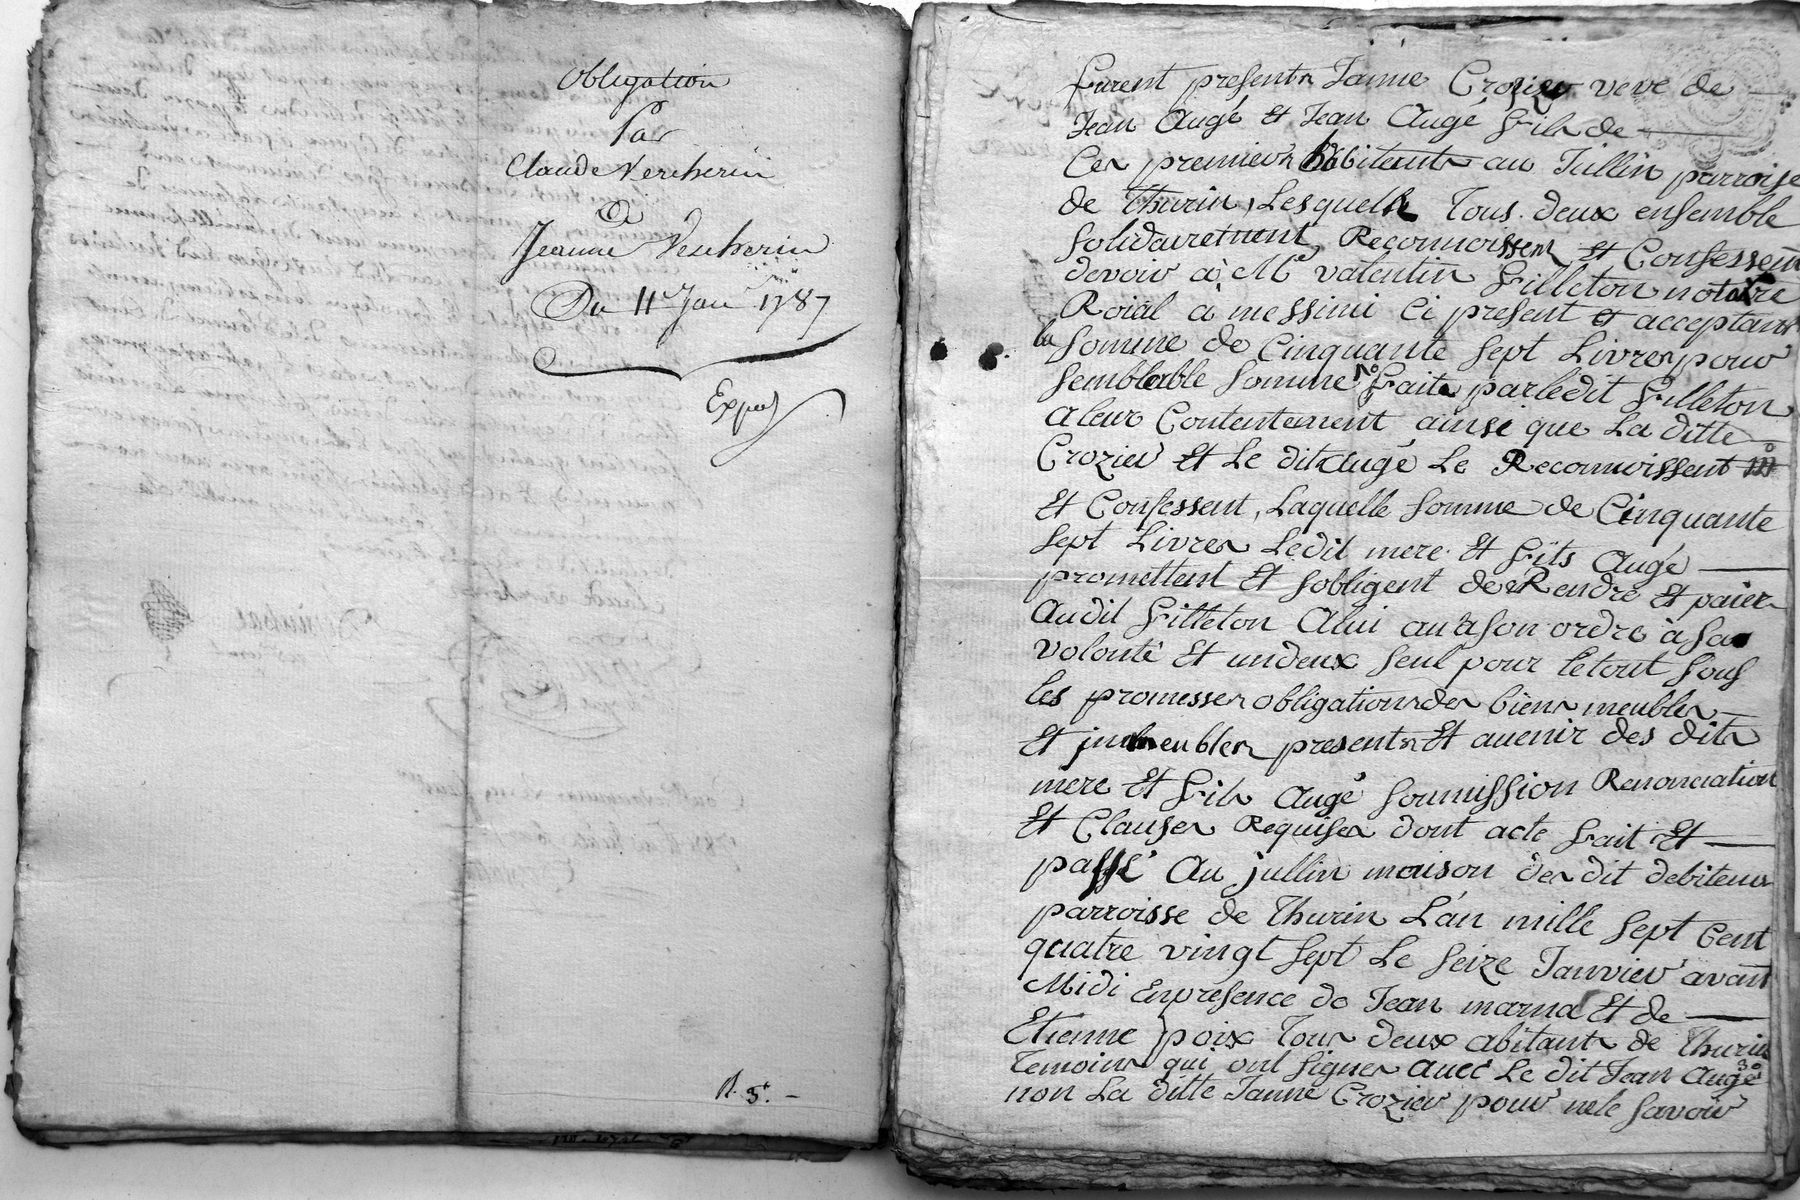 Obligation
Par
Claude Vercherin
A
Jeanne Vercherin
Du 11 Jan 1787
Exped
R. 3.
furent presents Janne Crozier veve de
Jean Augé et Jean Augé fils de
Ces premiers habitants au Jullin parroise
de Thurin, Lesquels Tous deux ensemble
solidairement Reconnoissent et Confessent
devoir à Mc valentin Filleton notaire
Roial à messimi Ci present et acceptant
la somme de Cinquante sept Livres pour
semblable somme faite par ledit Filleton
a leur Contentement ainsi que La ditte
Crozier Et Le dit augé Le Reconnoissent
Et Confessent, Laquelle somme de Cinquante
sept Livres Ledit mere Et fils Augé
promettent Et sobligent de Rendre Et paier
audit Filleton Alui ou a son ordre à sa
volonté Et undeux seul pour letout sous
les promesses obligations des biens meubles
Et jmmeubles presents Et avenir des dits
mere Et fils Augé soumission Renonciation
Et Clauses Requises dont acte fait Et
passé Au jullin maison des dit debiteurs
parroisse de Thurin L'an mille sept Cent
quatre vingt sept Le seize Janvier avant
Midi En presence de Jean marna Et de
Etienne poix Tous deux abitants de Thurin
Temoins qui ont signes avec Le dit Jean Augé
non La ditte Janne Crozier pour nele savoir